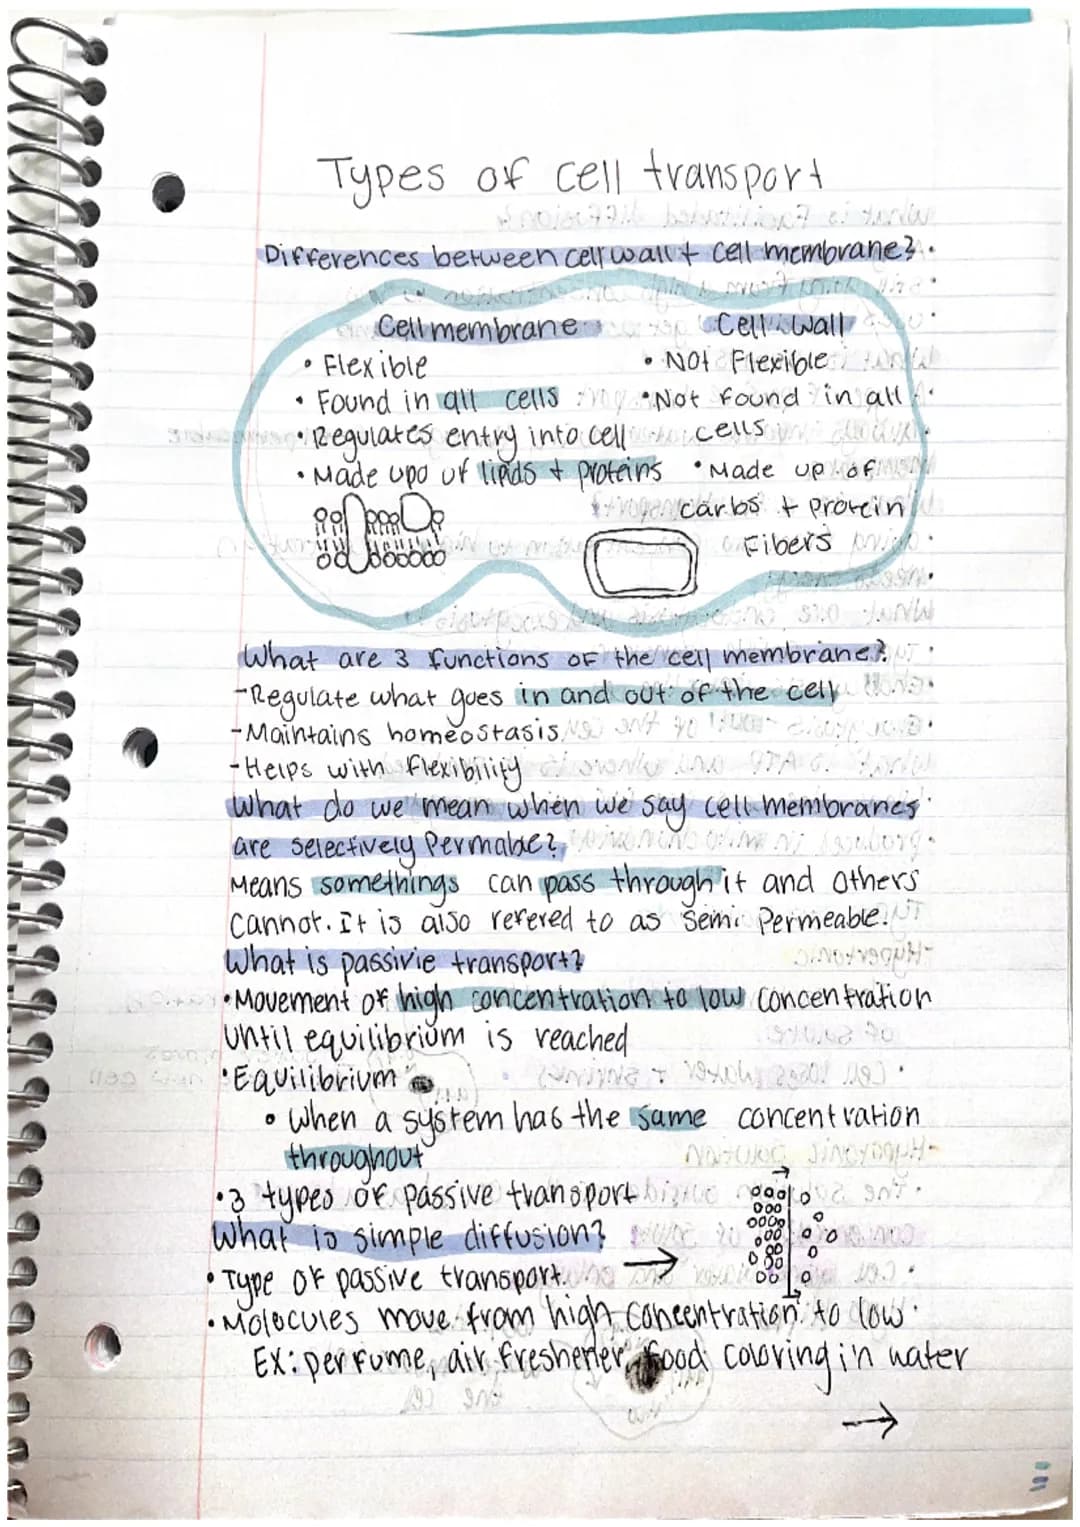 Types of cell transport
Differences between cell wall + cell membrane?
Cell membrane
• Flexible
• Found in all cells
• Regulates entry into cell
• Made upo of lipids + proteins
Cell Wall
• Not Flexible
• Not found in all
cells
• Made up of
carbs + protein
Fibers
What are 3 functions of the cell membrane?
-Regulate what goes in and out of the cell
-Maintains homeostasis
-Helps with flexibility
What do we mean when we say cell membranes
are selectively Permable?
Means somethings can pass through it and others
cannot. It is also refered to as semi Permeable.
What is passivie transport?
•Movement of high concentration to low concentration
until equilibrium is reached
•Equilibrium
• When a system has the same concentration
throughout
•3 types of passive transport
What is simple diffusion?
• Type of passive transport.
• Molecules move from high concentration to low
Ex: perfume, air freshener, food coloring in water